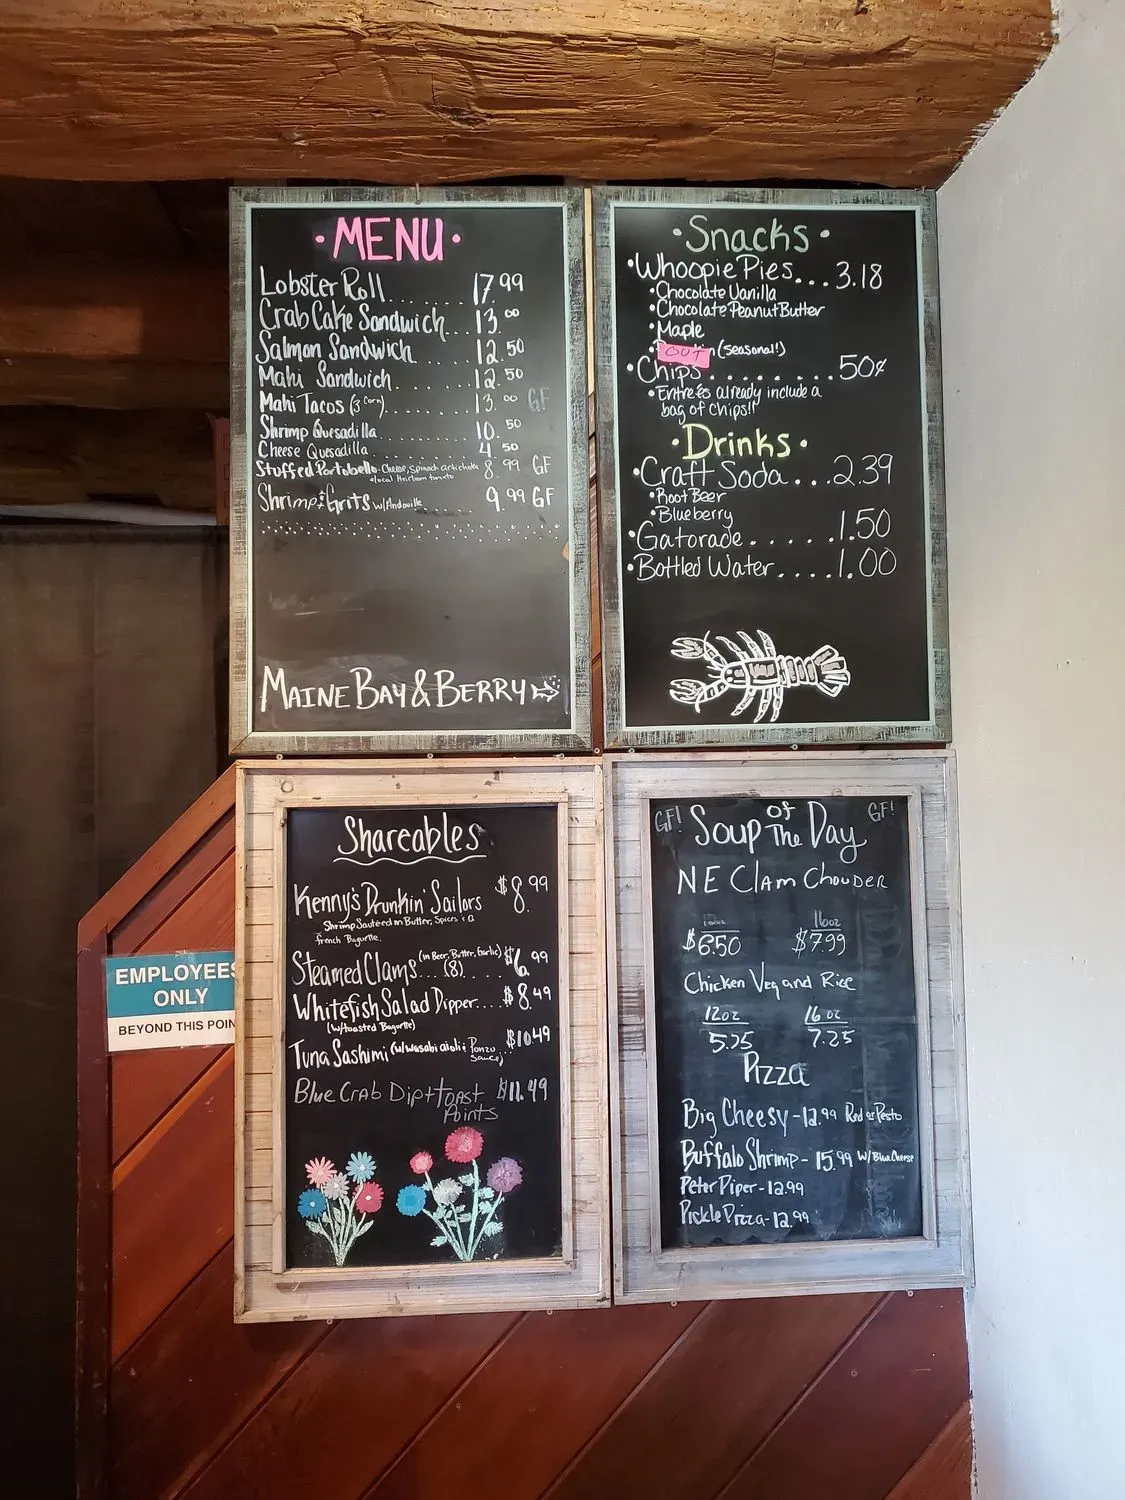 · MENU ·
Lobster Roll ....... 17.99
Crab Cake Sandwich... 13.00
Salmon Sandwich ...... 12.50
Mahi Sandwich ....... 12.50
Mahi Tacos (3 Corn) ....... 13.00 GF
Shrimp Quesadilla ....... 10.50
Cheese Quesadilla ....... 4.50
Stuffed Portobello - Cheese, Spinach artichoke 8.99 GF
+local Heirloom tomato
Shrimp & Grits w/Andouille ....... 9.99 GF
MAINE BAY & BERRY
· Snacks ·
• Whoopie Pies... 3.18
• Chocolate Vanilla
• Chocolate Peanut Butter
• Maple
OUT (seasonal!)
• Chips ........ 50¢
• Entrées already include a
bag of chips!!
· Drinks ·
• Craft Soda... 2.39
• Root Beer
• Blueberry
• Gatorade ...... 1.50
• Bottled Water .... 1.00
Shareables
Kenny's Drunkin' Sailors $8.99
Shrimp Sauteed in Butter, Spices & a
french Baguette.
Steamed Clams (in Beer, Butter, Garlic) (8) $6.99
Whitefish Salad Dipper .... $8.49
(w/toasted Baguette)
Tuna Sashimi (w/wasabi aioli & Ponzu Sauce) $10.49
Blue Crab Dip + toast $11.49
Points
EMPLOYEES
ONLY
BEYOND THIS POIN
GF! Soup of The Day GF!
NE Clam Chowder
16oz
$6.50 $7.99
Chicken Veg and Rice
12oz 16 oz
5.25 7.25
Pizza
Big Cheesy - 12.99 Red or Pesto
Buffalo Shrimp - 15.99 w/ Blue Cheese
Peter Piper - 12.99
Pickle Pizza - 12.99